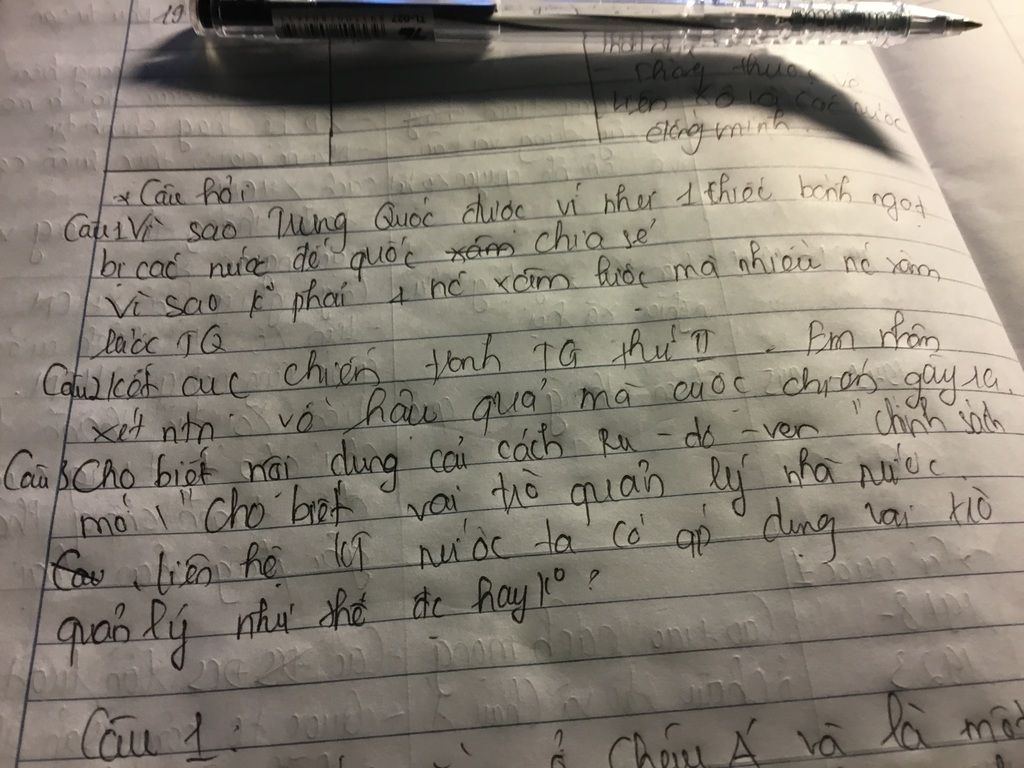 19
- chạy thuộc về
Liên Xô và các nước
đồng minh
* Câu hỏi
Câu 1 Vì sao Trung Quốc được ví như 1 thiếc bánh ngọt
bị các nước đế quốc xâm chia sẻ
Vì sao k° phải 1 nc xâm lược mà nhiều nc xâm
lược TQ
Câu 2 Kết cục chiến tranh TG thứ II. Em nhận
xét ntn về hậu quả mà cuộc chiến gây ra.
Câu 3 Cho biết nội dung cải cách Ru-dơ-ven "chính sách
mới" Cho biết vai trò quản lý nhà nước
Câu, liên hệ KT nước ta có áp dụng vai trò
quản lý như thế đc hay k° ?
Câu 1:
Châu Á và là một